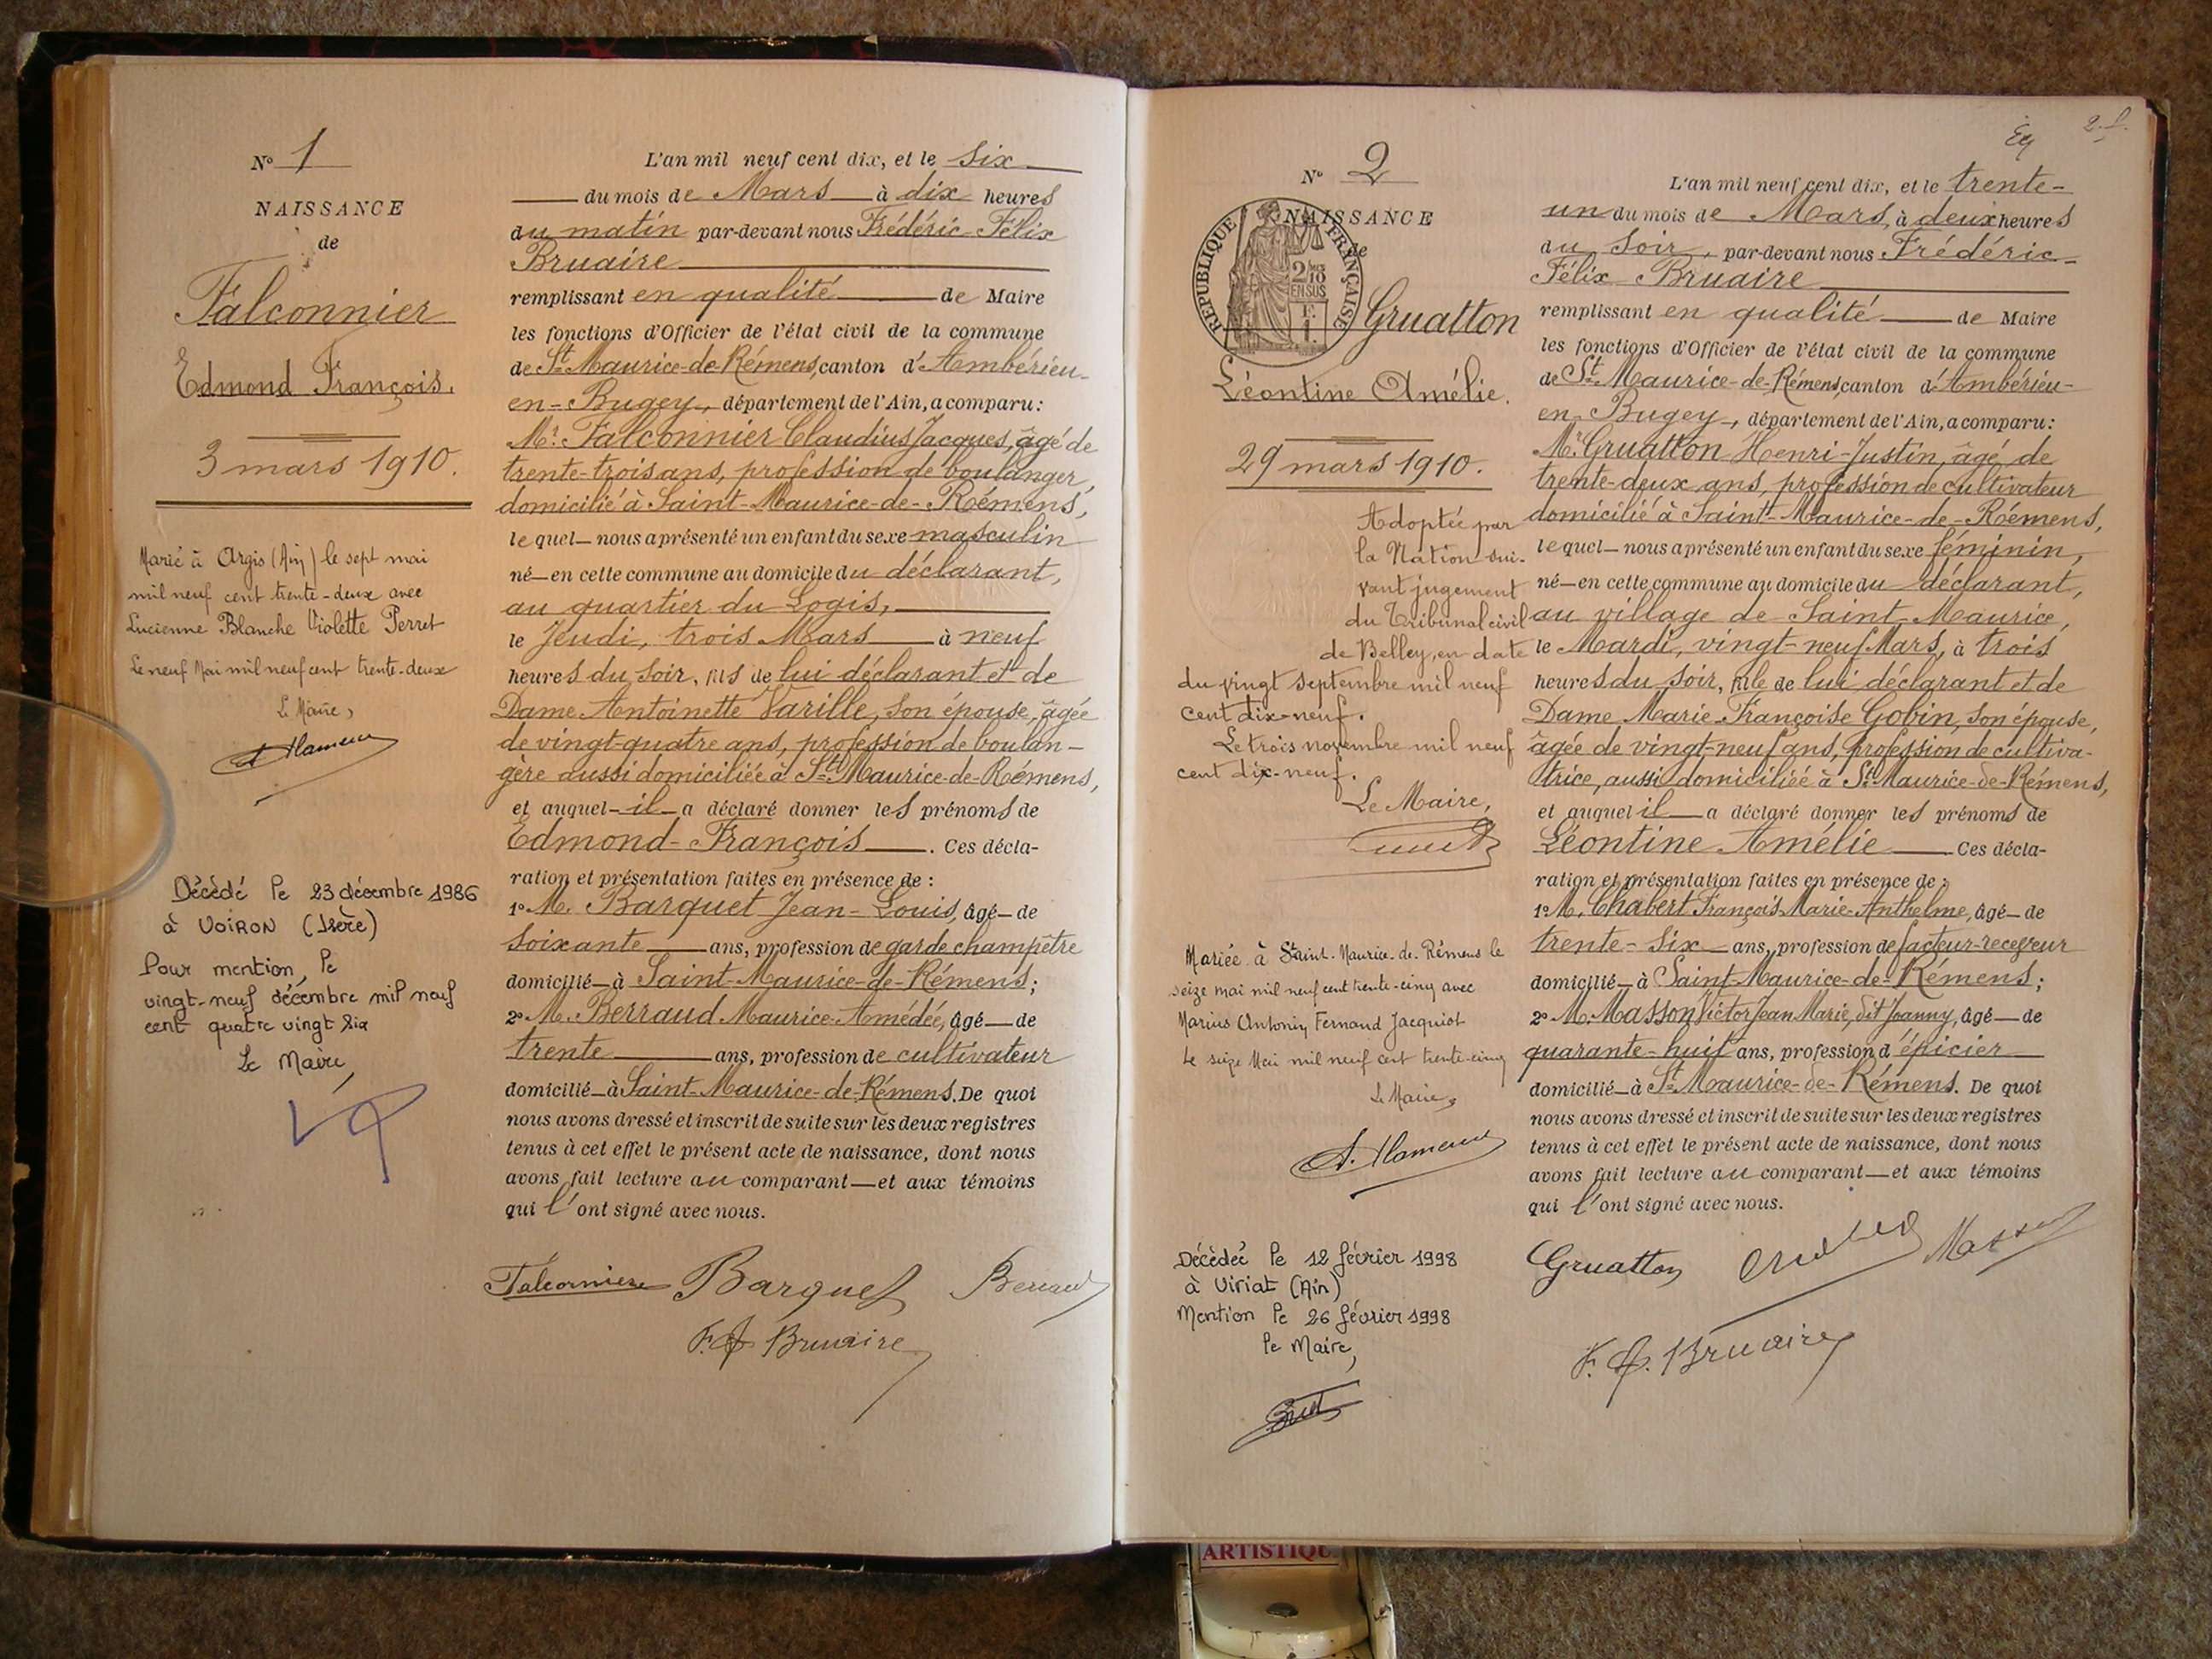 N° 1
NAISSANCE
de
Falconnier
Edmond François.
3 mars 1910.
Marié à Argis (Ain) le sept mai
mil neuf cent trente-deux avec
Lucienne Blanche Violette Perret
Le neuf Mai mil neuf cent trente-deux
Le Maire,
Décédé le 23 décembre 1986
à VOIRON (Isère)
Pour mention, le
vingt-neuf décembre mil neuf
cent quatre vingt six
Le Maire,
L'an mil neuf cent dix, et le six
du mois de Mars à dix heures
du matin par-devant nous Frédéric-Félix
Bruaire
remplissant en qualité de Maire
les fonctions d'Officier de l'état civil de la commune
de St Maurice-de-Rémens, canton d'Ambérieu-
en-Bugey, département de l'Ain, a comparu:
Mr. Falconnier Claudius Jacques, âgé de
trente-trois ans, profession de boulanger,
domicilié à Saint-Maurice-de-Rémens,
lequel nous a présenté un enfant du sexe masculin
né en cette commune au domicile du déclarant,
au quartier du Logis,
le Jeudi, trois Mars à neuf
heures du soir, fils de lui déclarant et de
Dame Antoinette Varille, son épouse, âgée
de vingt-quatre ans, profession de boulan-
gère aussi domiciliée à St Maurice-de-Rémens,
et auquel il a déclaré donner les prénoms de
Edmond-François. Ces décla-
ration et présentation faites en présence de :
1° M. Barquet Jean-Louis, âgé de
soixante ans, profession de garde champêtre
domicilié à Saint-Maurice-de-Rémens;
2° M. Berraud Maurice-Amédée, âgé de
trente ans, profession de cultivateur
domicilié à Saint-Maurice-de-Rémens. De quoi
nous avons dressé et inscrit de suite sur les deux registres
tenus à cet effet le présent acte de naissance, dont nous
avons fait lecture au comparant et aux témoins
qui l'ont signé avec nous.
Falconnier Barquet Berraud
F. F. Bruaire
2. f.
N° 2
NAISSANCE
de
REPUBLIQUE FRANÇAISE
2/10
EN SUS
Gruatton
Léontine Amélie.
29 mars 1910.
Adoptée par
la Nation sui-
vant jugement
du Tribunal civil
de Belley, en date
du vingt septembre mil neuf
cent dix-neuf.
Le trois novembre mil neuf
cent dix-neuf.
Le Maire,
Mariée à Saint-Maurice-de-Rémens le
seize mai mil neuf cent trente-cinq avec
Marius Antonin Fernand Jacquiot
Le seize Mai mil neuf cent trente-cinq
Le Maire,
Décédée le 12 février 1998
à Viriat (Ain)
Mention le 26 février 1998
le Maire,
L'an mil neuf cent dix, et le trente-
un du mois de Mars, à deux heures
du soir, par-devant nous Frédéric-
Félix Bruaire
remplissant en qualité de Maire
les fonctions d'Officier de l'état civil de la commune
de St Maurice-de-Rémens, canton d'Ambérieu-
en Bugey, département de l'Ain, a comparu:
Mr. Gruatton Henri-Justin, âgé de
trente-deux ans, profession de cultivateur
domicilié à Saint-Maurice-de-Rémens,
lequel nous a présenté un enfant du sexe féminin,
né en cette commune au domicile du déclarant,
au village de Saint-Maurice,
le Mardi, vingt-neuf Mars, à trois
heures du soir, fille de lui déclarant et de
Dame Marie-Françoise Gobin, son épouse,
âgée de vingt-neuf ans, profession de cultiva-
trice, aussi domiciliée à St Maurice-de-Rémens,
et auquel il a déclaré donner les prénoms de
Léontine Amélie Ces décla-
ration et présentation faites en présence de :
1° M. Chabert François-Marie-Anthelme, âgé de
trente-six ans, profession de facteur-receveur
domicilié à Saint-Maurice-de-Rémens;
2° M. Masson Victor Jean Marie, dit Joanny, âgé de
quarante-huit ans, profession d'épicier
domicilié à St Maurice-de-Rémens. De quoi
nous avons dressé et inscrit de suite sur les deux registres
tenus à cet effet le présent acte de naissance, dont nous
avons fait lecture au comparant et aux témoins
qui l'ont signé avec nous.
Gruatton Masson
F. F. Bruaire
ARTISTIQU